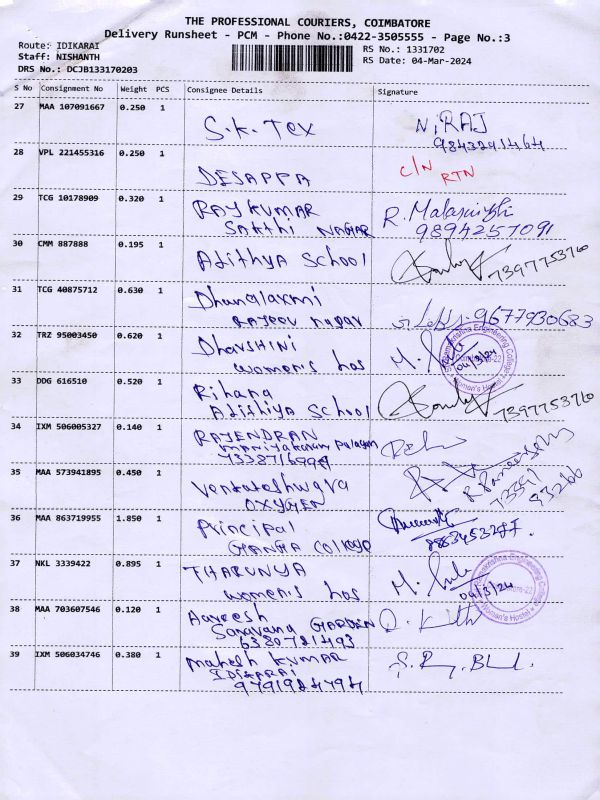 THE PROFESSIONAL COURIERS, COIMBATORE
Delivery Runsheet - PCM - Phone No.:0422-3505555 - Page No.:3
Route: IDIKARAI
Staff: NISHANTH
DRS No.: DCJB133170203
RS No.: 1331702
RS Date: 04-Mar-2024
S No Consignment No Weight PCS Consignee Details Signature
27 MAA 107091667 0.250 1 S.K. Tex NiRAJ
9843291464
28 VPL 221455316 0.250 1 DESAPPA C/N RTN
29 TCG 10178909 0.320 1 RAJKUMAR
SAKTHI NAGAR
R.
9894257091
30 CMM 887888 0.195 1 Adithya School 7397753760
31 TCG 40875712 0.630 1 Dhanalaxmi
RAJEEV nagar
9677930683
32 TRZ 95003450 0.620 1 Dharshini
women's hos
M.
04/3/24
33 DDG 616510 0.520 1 Rihana
Adithiya School
7397753760
34 IXM 506005327 0.140 1 RAJENDRAN
maniyakaram Palayam
35 MAA 573941895 0.450 1 Venkateshwara
OXYGEN
73391
93266
36 MAA 863719955 1.850 1 Principal
GANGA College
37 NKL 3339422 0.895 1 THARUNYA
women's hos
M.
04/3/24
Women's Hostel
38 MAA 703607546 0.120 1 Aareesh
GARDEN
6380721493
39 IXM 506034746 0.380 1 Mahesh KUMAR
IDIKARAI